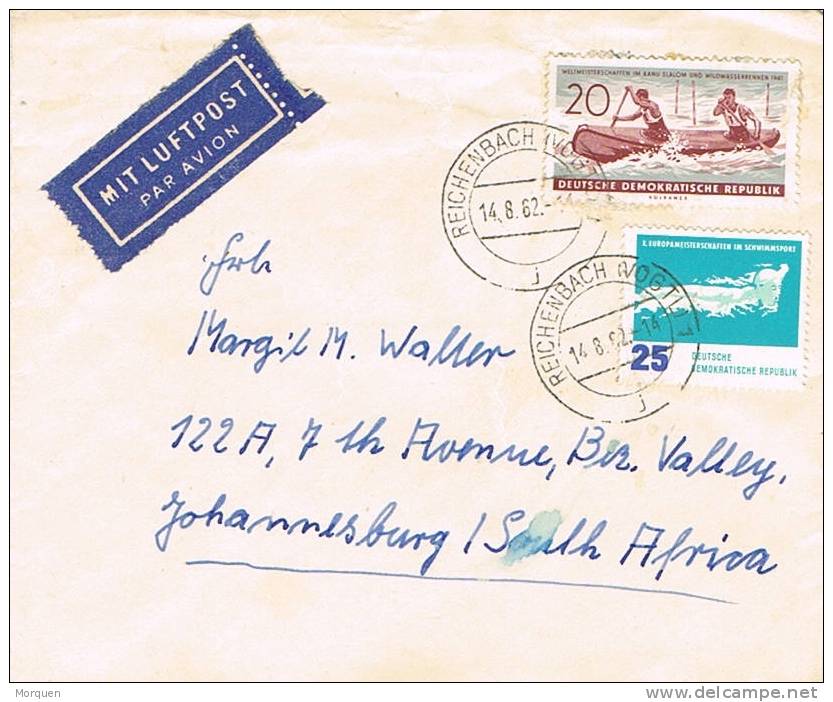 MIT LUFTPOST
PAR AVION
WELTMEISTERSCHAFTEN IM KANU SLALOM UND WILDWASSERRENNEN 1961
20
DEUTSCHE DEMOKRATISCHE REPUBLIK
REICHENBACH (VOGTL
14.8.62.-14
j
X. EUROPAMEISTERSCHAFTEN IM SCHWIMMSPORT
25
DEUTSCHE
DEMOKRATISCHE REPUBLIK
REICHENBACH (VOGTL
14.8.62.-14
j
Margit M. Walter
122A, 7 th Avenue, Bez. Valley.
Johannesburg / South Africa
Morquen
www.delcampe.net